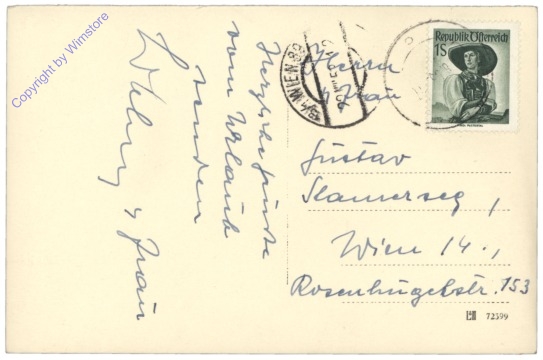 Copyright by Wimstore
Herzliche Grüße
vom Urlaub
senden
u Frau
WIEN 89
Republik Österreich
1S
Herrn
u Frau
Gustav
Slamerseg,
Wien 14.,
Rosenhügelstr. 153
72599